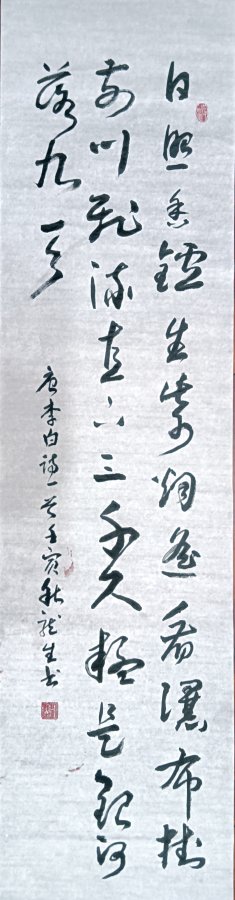 日照香鑪生紫烟遙看瀑布挂
前川飛流直下三千尺疑是銀河
落九天
唐李白詩一首壬寅秋龍生书